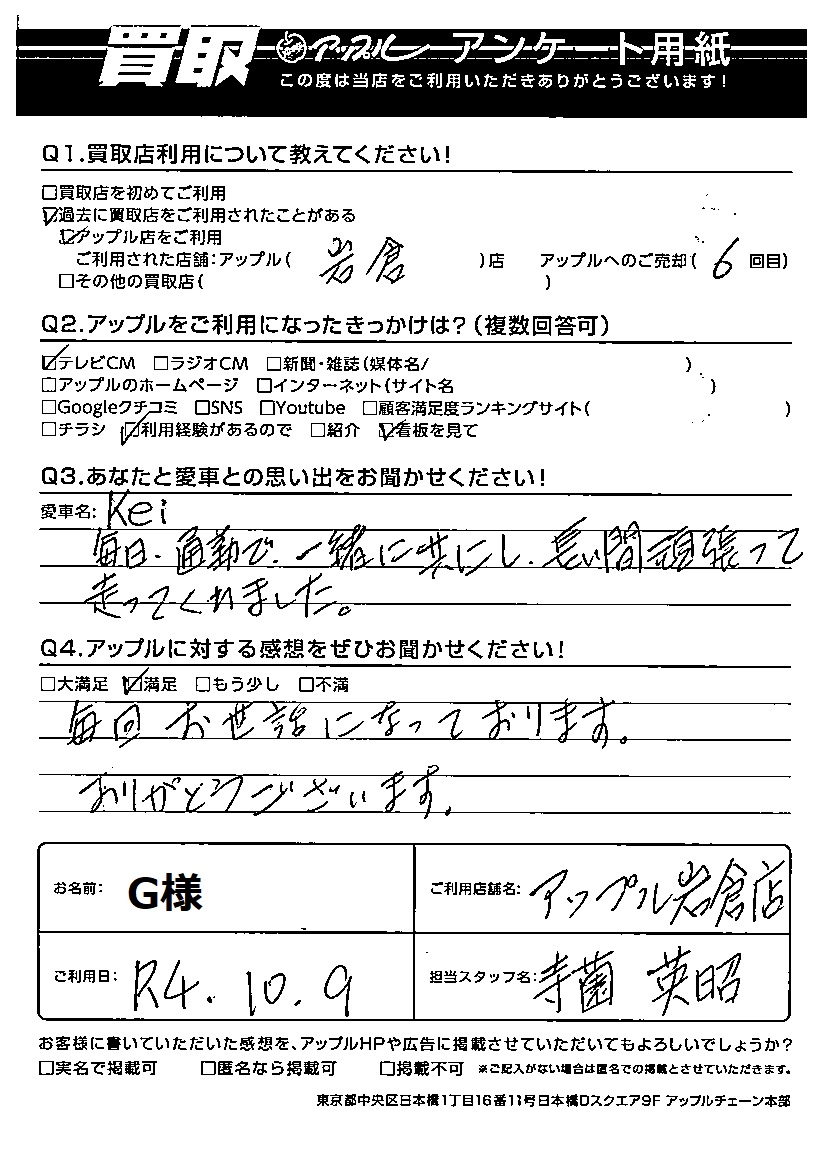 買取 アップル アンケート用紙
この度は当店をご利用いただきありがとうございます!
Q1.買取店利用について教えてください!
□買取店を初めてご利用
☑過去に買取店をご利用されたことがある
☑アップル店をご利用
ご利用された店舗:アップル( 岩倉 )店 アップルへのご売却( 6 回目)
□その他の買取店( )
Q2.アップルをご利用になったきっかけは?(複数回答可)
☑テレビCM □ラジオCM □新聞・雑誌(媒体名/ )
□アップルのホームページ □インターネット(サイト名 )
□Googleクチコミ □SNS □Youtube □顧客満足度ランキングサイト( )
□チラシ ☑利用経験があるので □紹介 ☑看板を見て
Q3.あなたと愛車との思い出をお聞かせください!
愛車名: Kei
毎日、通勤で、一緒に共にし、長い間頑張って
走ってくれました。
Q4.アップルに対する感想をぜひお聞かせください!
□大満足 ☑満足 □もう少し □不満
毎回お世話になっております。
ありがとうございます。
お名前: G様
ご利用店舗名: アップル岩倉店
ご利用日: R4.10.9
担当スタッフ名: 寺薗 英昭
お客様に書いていただいた感想を、アップルHPや広告に掲載させていただいてもよろしいでしょうか?
□実名で掲載可 □匿名なら掲載可 □掲載不可 ※ご記入がない場合は匿名での掲載とさせていただきます。
東京都中央区日本橋1丁目16番11号日本橋Dスクエア9F アップルチェーン本部